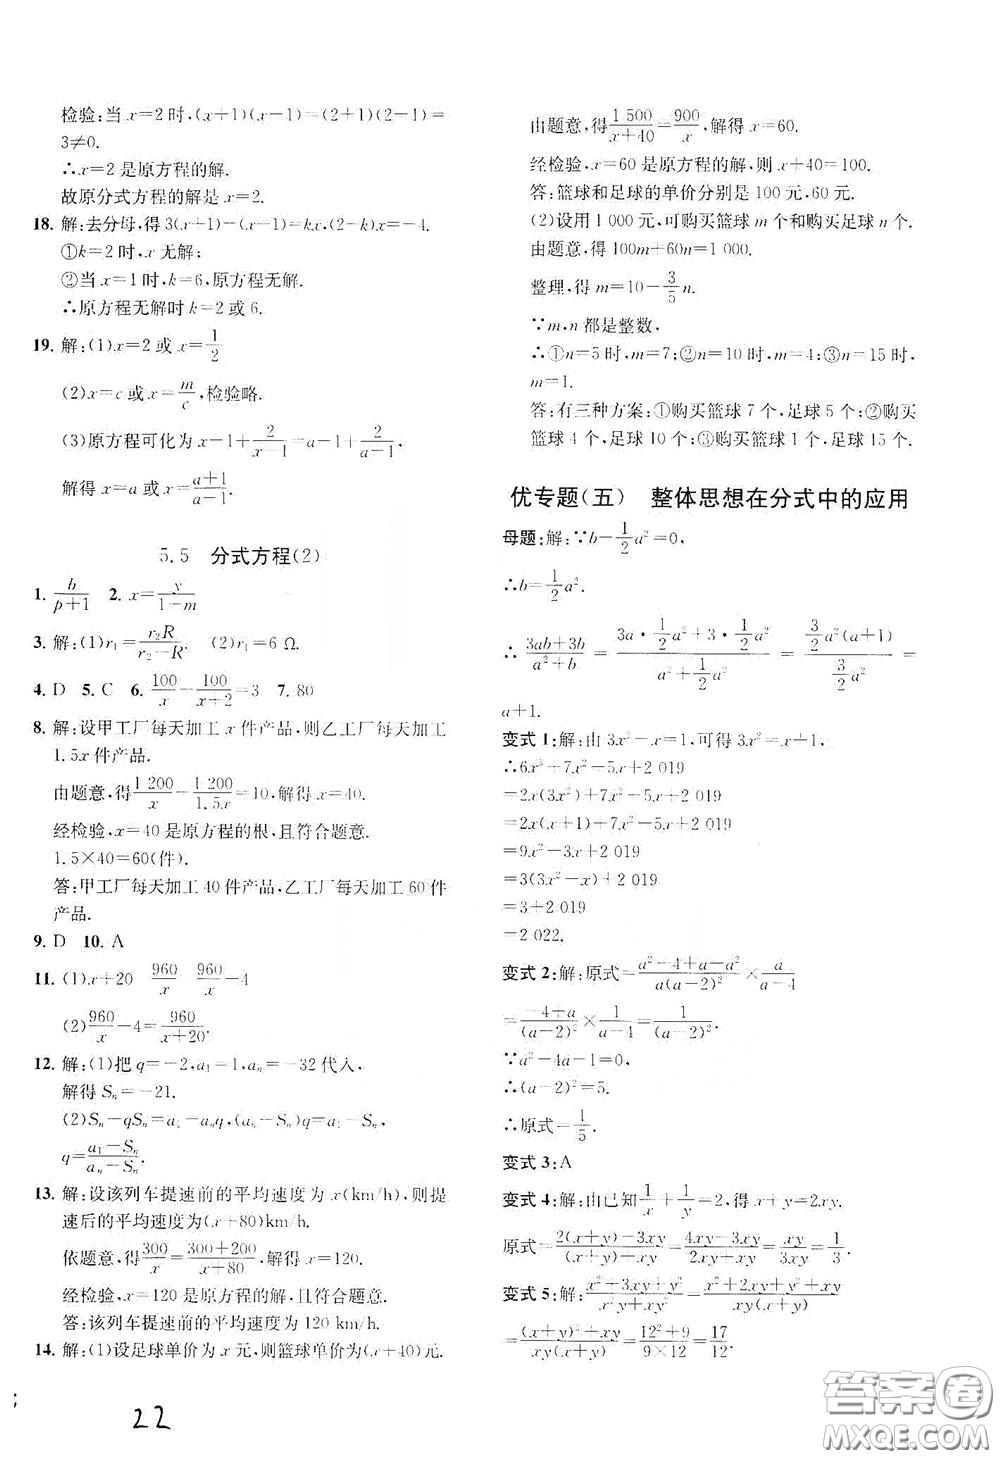 检验:当 x=2 时,(x+1)(x-1)=(2+1)(2-1)=
3≠0.
∴x=2 是原方程的解.
故原分式方程的解是 x=2.
18. 解:去分母,得 3(x+1)-(x-1)=kx,(2-k)x=-4.
①k=2 时,x 无解;
②当 x=1 时,k=6,原方程无解.
∴原方程无解时 k=2 或 6.
19. 解:(1)x=2 或 x=1/2
(2)x=c 或 x=m/c,检验略.
(3)原方程可化为 x-1+2/(x-1)=a-1+2/(a-1),
解得 x=a 或 x=(a+1)/(a-1).
5.5 分式方程(2)
1. b/(p+1) 2. x=y/(1-m)
3. 解:(1)r₁=r₂R/(r₂-R). (2)r₁=6 Ω.
4. D 5. C 6. 100/x-100/(x+2)=3 7. 80
8. 解:设甲工厂每天加工 x 件产品,则乙工厂每天加工
1.5x 件产品.
由题意,得1 200/x-1 200/1.5x=10,解得 x=40.
经检验,x=40 是原方程的根,且符合题意.
1.5×40=60(件).
答:甲工厂每天加工 40 件产品,乙工厂每天加工 60 件
产品.
9. D 10. A
11. (1)x+20 960/x 960/x-4
(2)960/x-4=960/(x+20).
12. 解:(1)把 q=-2,a₁=1,aₙ=-32 代入,
解得 Sₙ=-21.
(2)Sₙ-qSₙ=a₁-aₙq,(aₙ-Sₙ)q=a₁-Sₙ,
q=(a₁-Sₙ)/(aₙ-Sₙ).
13. 解:设该列车提速前的平均速度为 x(km/h),则提
速后的平均速度为(x+80)km/h.
依题意,得300/x=(300+200)/(x+80),解得 x=120.
经检验,x=120 是原方程的解,且符合题意.
答:该列车提速前的平均速度为 120 km/h.
14. 解:(1)设足球单价为 x 元,则篮球单价为(x+40)元.
22
由题意,得1 500/(x+40)=900/x,解得 x=60.
经检验,x=60 是原方程的解,则 x+40=100.
答:篮球和足球的单价分别是 100 元,60 元.
(2)设用 1 000 元,可购买篮球 m 个和购买足球 n 个.
由题意,得 100m+60n=1 000.
整理,得 m=10-3/5n.
∵m,n 都是整数,
∴①n=5 时,m=7;②n=10 时,m=4;③n=15 时,
m=1.
答:有三种方案:①购买篮球 7 个,足球 5 个;②购买
篮球 4 个,足球 10 个;③购买篮球 1 个,足球 15 个.
优专题(五) 整体思想在分式中的应用
母题:解:∵b-1/2a²=0,
∴b=1/2a².
∴(3ab+3b)/(a²+b)=(3a·1/2a²+3·1/2a²)/(a²+1/2a²)=(3/2a²(a+1))/(3/2a²)=
a+1.
变式 1:解:由 3x²-x=1,可得 3x²=x+1,
∴6x³+7x²-5x+2 019
=2x(3x²)+7x²-5x+2 019
=2x(x+1)+7x²-5x+2 019
=9x²-3x+2 019
=3(3x²-x)+2 019
=3+2 019
=2 022.
变式 2:解:原式=(a²-4+a-a²)/(a(a-2)²)×a/(a-4)
=(-4+a)/(a-2)²×1/(a-4)=1/(a-2)².
∵a²-4a-1=0,
∴(a-2)²=5.
∴原式=1/5.
变式 3:A
变式 4:解:由已知1/x+1/y=2,得 x+y=2xy.
原式=(2(x+y)-3xy)/((x+y)+xy)=(4xy-3xy)/(2xy+xy)=xy/3xy=1/3.
变式 5:解:(x²+3xy+y²)/(x²y+xy²)=(x²+2xy+y²+xy)/(xy(x+y))
=((x+y)²+xy)/(xy(x+y))=(12²+9)/(9×12)=17/12.
答案卷
MXQE.COM